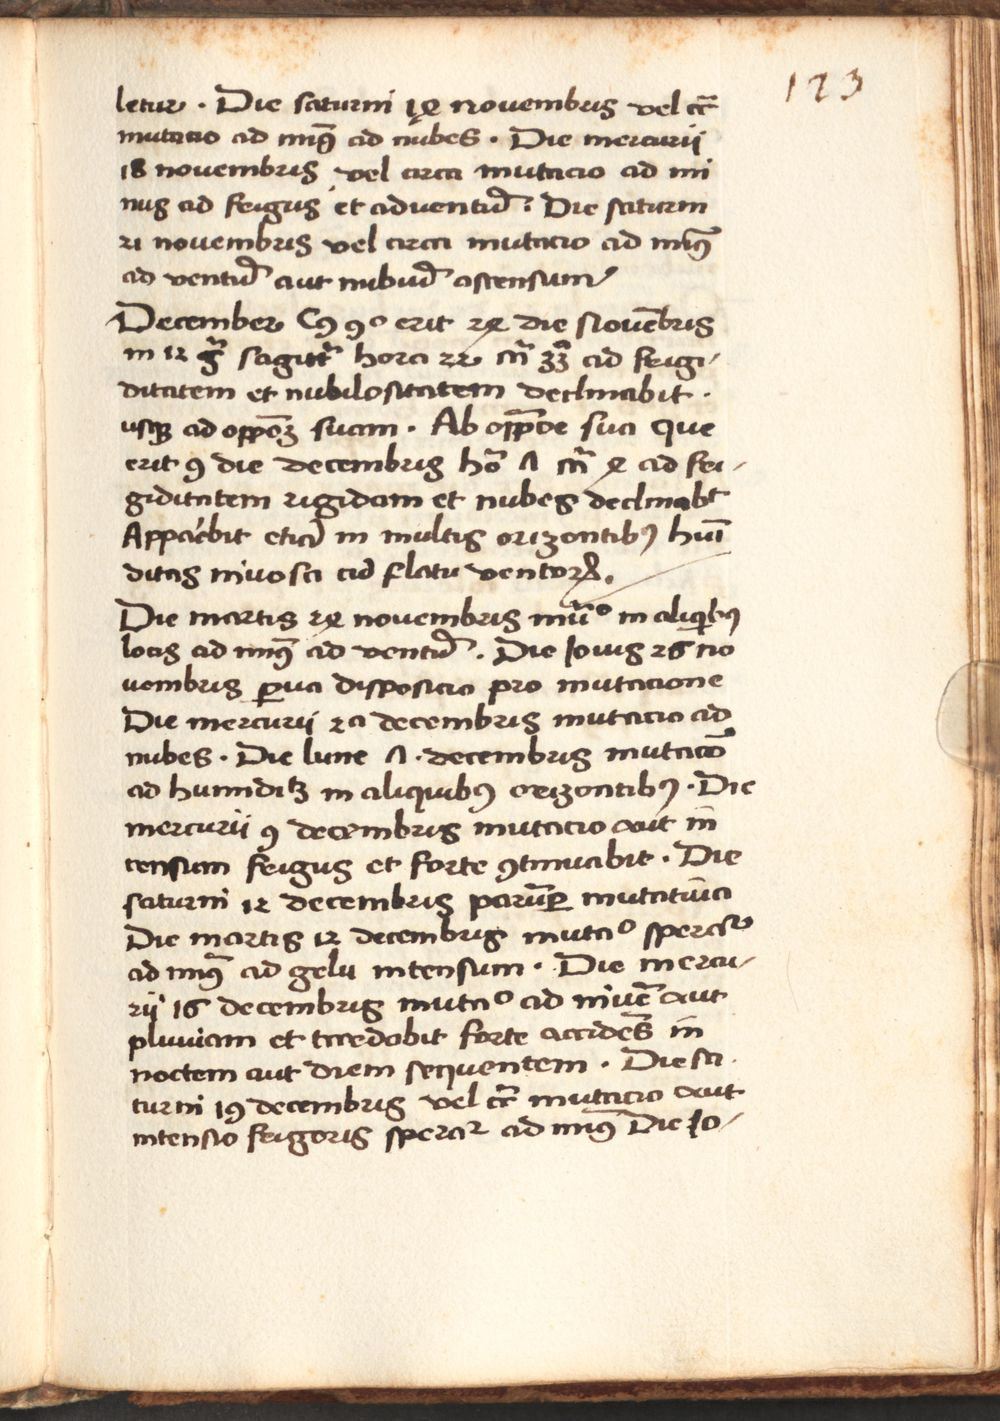 123
letur . Die saturni 14 novembris vel cͬca
mutacio ad minꝰ ad nubes . Die mercurii
18 novembris vel circa mutacio ad mi
nus ad frigus et ad ventū . Die saturni
21 novembris vel circa mutacio ad minꝰ
ad ventū aut nubiū ascensum
December erit 24 die Novēbris
in 12 gͣ sagitt hora 22 33 ad frigi-
ditatem et nubilositatem declinabit .
usqꝫ ad opp̄oēꝫ suam . Ab opp̄oe sua que
erit 9 die decembris ho 7 4 ad fri-
giditatem rigidam et nubes declinabt
Apparebit etiā in multis orizontibꝰ humi
ditas nivosa cū flatu ventorꝝ.
Die martis 24 novembris mūº in aliqibꝰ
locis ad minꝰ ad ventū . Die Jovis 26 no
vembris ꝑva disposicio pro mutacione
Die mercurii 2a decembris mutacio ad
nubes . Die lune 7 . decembris mutacō
ad humiditꝫ in aliquibꝰ orizontibꝰ . Die
mercurii 9 decembris mutacio aut in
tensum frigus et forte ꝯtinuabit . Die
saturni 12 decembris parūꝑ mutativa
Die martis 12 decembris mutaº speratꝛ
ad minꝰ ad gelu intensum . Die mercu-
rii 16 decembris mutaº ad nivē aut
pluviam et forte accidēs in
noctem aut diem sequentem . Die sa
turni 19 decembris vel cͬca mutacio aut
intensio frigoris speraꝛ ad minꝰ Die Jo-